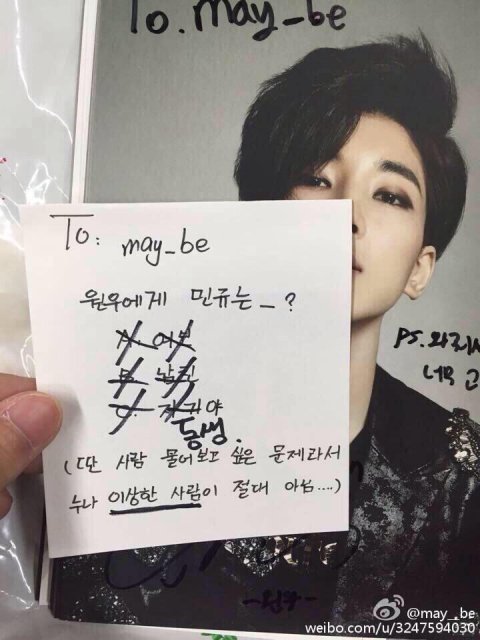 To. may_be
To: may_be
원우에게 민규는 _ ?
동생.
(딴 사람 물어보고 싶은 문제라서
누나 이상한 사람이 절대 아님....)
PS. 와줘서
너무 고
-원우-
@may_.be
weibo.com/u/3247594030